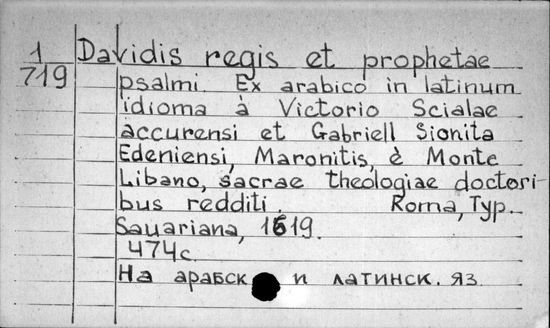 1
719
Davidis regis et prophetae
psalmi. Ex arabico in latinum
idioma à Victorio Scialae
accurensi et Gabriell Sionita
Edeniensi, Maronitis, è Monte
Libano, sacrae theologiae doctori-
bus redditi. Roma, Typ.
Sauariana, 1619.
474c.
На арабск и латинск. яз.